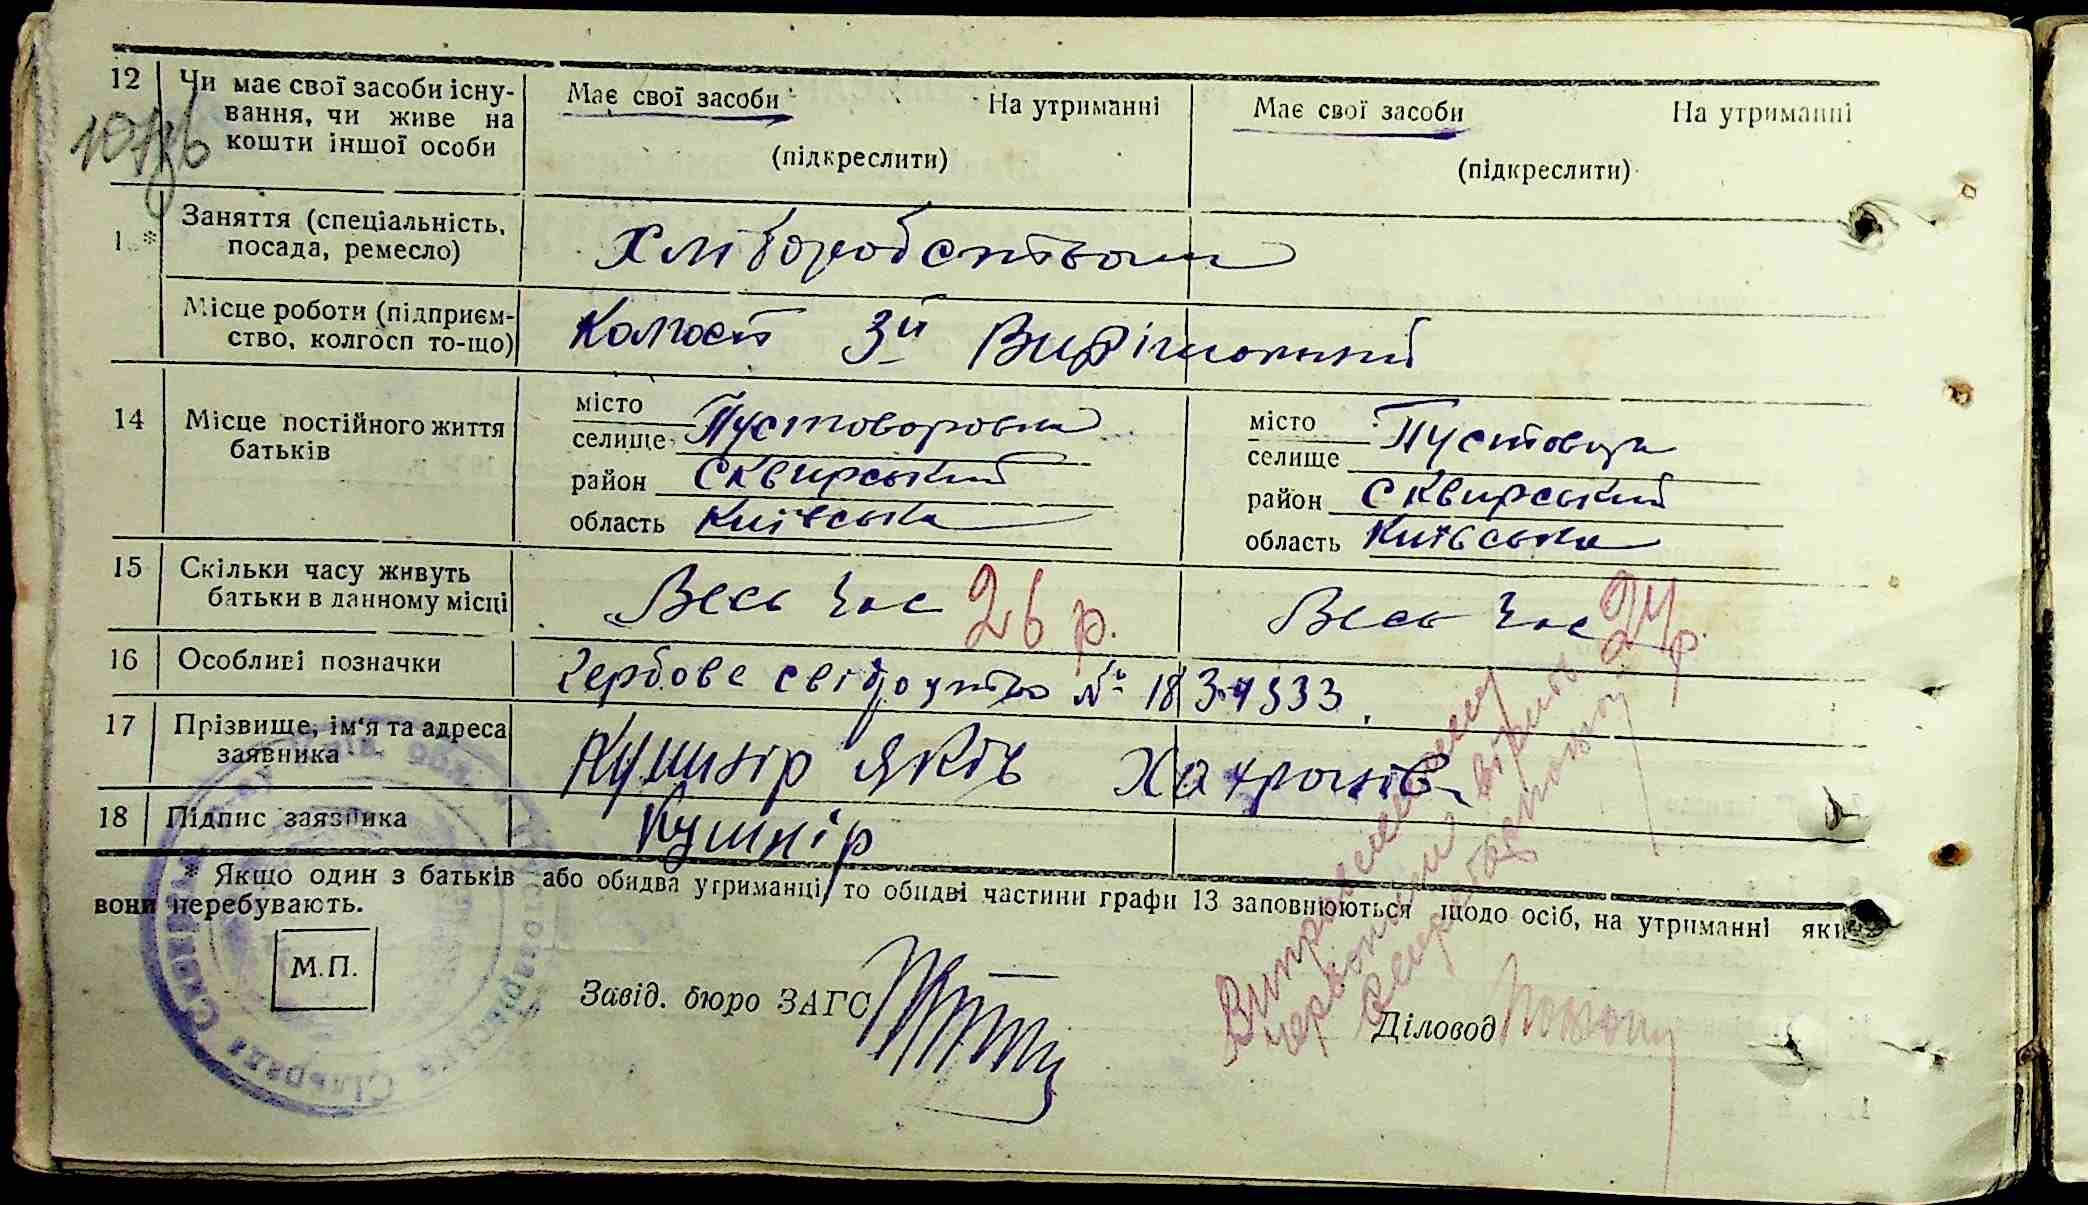 12 Чи має свої засоби існу-
вання, чи живе на
кошти іншої особи
Має свої засоби На утриманні
(підкреслити)
Має свої засоби На утриманні
(підкреслити)
Заняття (спеціальність,
посада, ремесло)
Хліборобством
Місце роботи (підприєм-
ство, колгосп то-що)
Колгосп 3й Вирішальний
14 Місце постійного життя
батьків
місто
селище Пустоворовка
район Сквирський
область Київська
місто
селище
район Сквирський
область Київська
15 Скільки часу живуть
батьки в данному місці
Весь час 26 р.
Весь час 24 р.
16 Особливі позначки
Гербове свідоцтво №
17 Прізвище, ім'я та адреса
заявника
Кушнір Яків
18 Підпис заявника
Кушнір
* Якщо один з батьків або обидва утриманці, то обидві частини графи 13 заповнюються щодо осіб, на утриманні яких
вони перебувають.
М.П.
Завід. бюро ЗАГС
Діловод